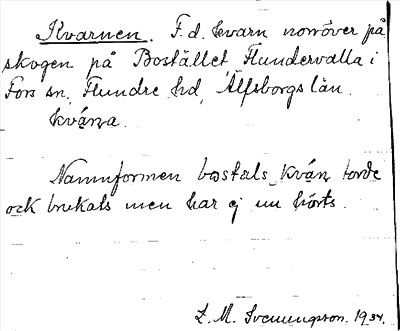 Kvarnen. F. d. kvarn norröver på
skogen på Bostället Flundervalla i
Fors sn, Flundre hd, Älfsborgs län.
kvána.
Namnformen bostals kván torde
ock brukats men har ej nu hörts.
L. M. Svenungsson. 1934.